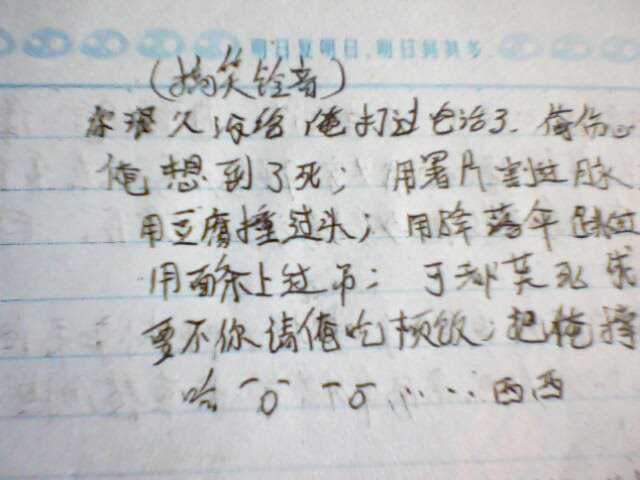 明日复明日,明日何其多
(搞笑铃音)
你很久没给俺打过电话了.俺伤心
俺想到了死;用薯片割过脉
用豆腐撞过头;用降落伞跳过
用面条上过吊;可都莫死成
要不你请俺吃顿饭,把俺撑
哈 ˉ0ˉ ˉoˉ…… 西西